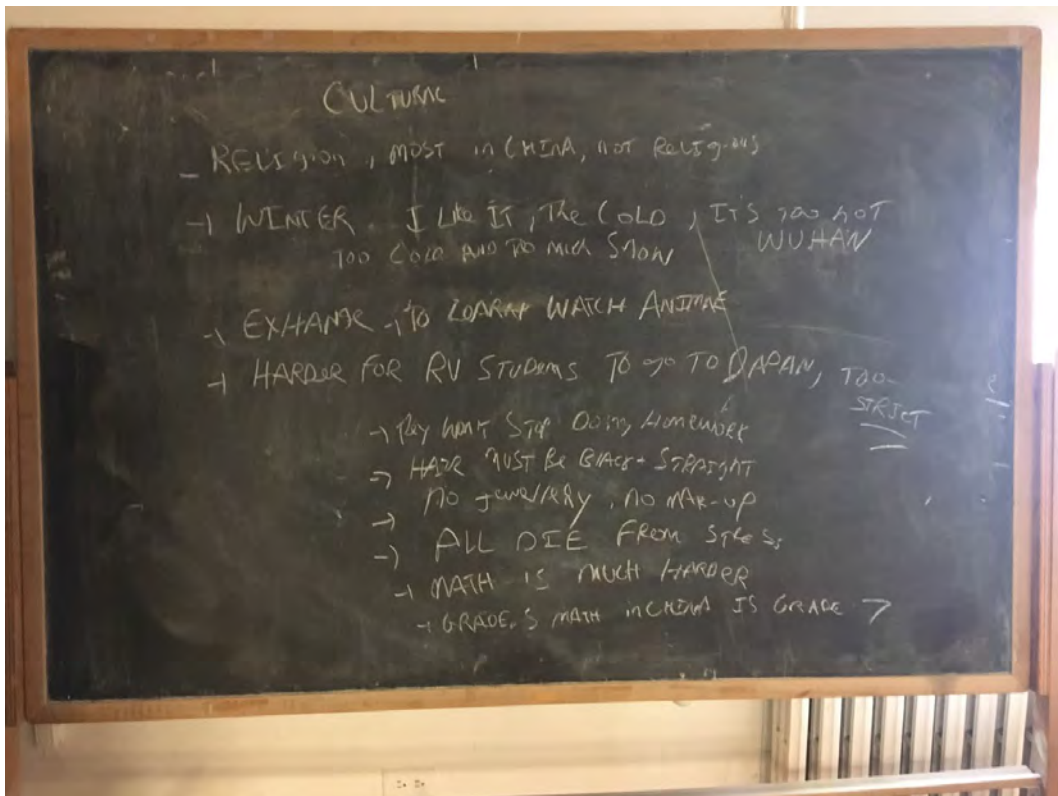 CULTURAL
- RELIGION, MOST IN CHINA, NOT RELIGIOUS
→ WINTER. I LIKE IT, THE COLD, IT'S TOO HOT
WUHAN
TOO COLD AND TOO MUCH SNOW
→ EXHANGE → TO WATCH ANIMAE
→ HARDER FOR RV STUDENTS TO GO TO JAPAN, TOO
STRICT
→ THEY WON'T STOP DOING HOMEWORK
→ HAIR MUST BE BLACK + STRAIGHT
→ NO JEWELLERY, NO MAK-UP
→ ALL DIE FROM STRESS
→ MATH IS MUCH HARDER
→ GRADE 5 MATH IN CHINA IS GRADE 7